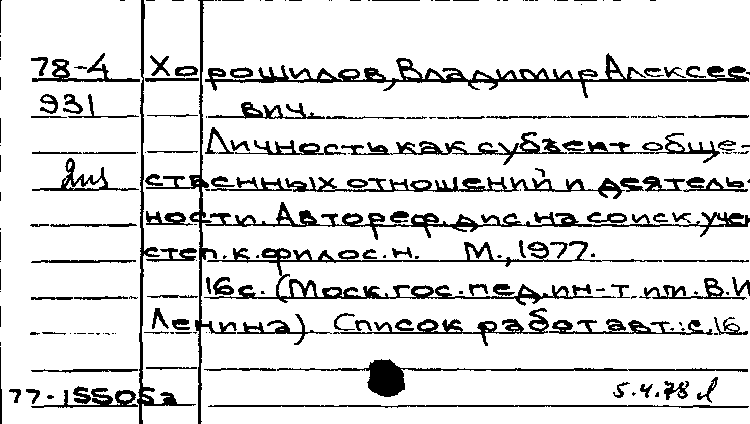 78-4 Хорошилов, Владимир Алексее-
931 вич.
Личность как субъект обще-
ственных отношений и деятель-
ности. Автореф. дис. на соиск. учен.
степ. к. филос. н. М., 1977.
16 с. (Моск. гос. пед. ин-т им. В.И.
Ленина). Список работ авт.: с. 16.
77-15505а
5.4.78